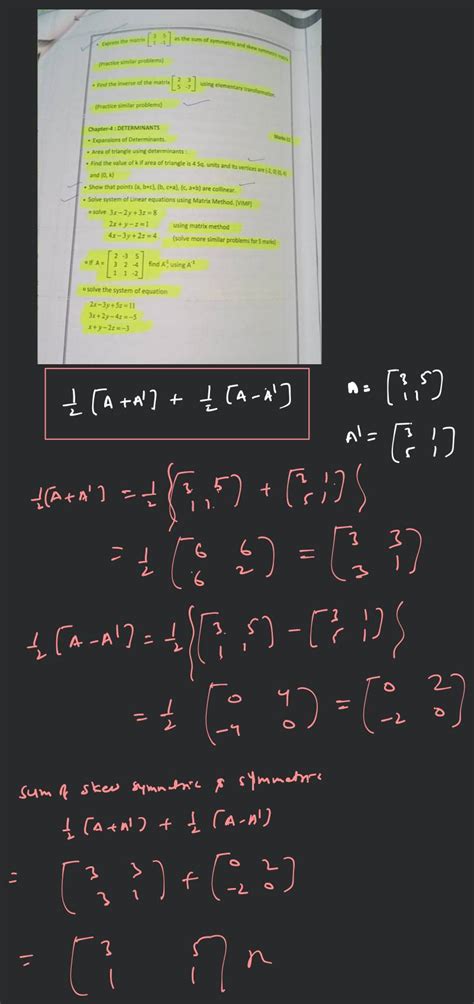 • Express the matrix [3 5; 1 -1] as the sum of symmetric and skew symmetric matrix
(Practice similar problems)
• Find the inverse of the matrix [2 3; 5 -7] using elementary transformation.
(Practice similar problems)
Chapter-4 : DETERMINANTS
• Expansions of Determinants.
• Area of triangle using determinants :
• Find the value of k if area of triangle is 4 Sq. units and its vertices are (-2, 0) (0, 4)
and (0, k)
• Show that points (a, b+c), (b, c+a), (c, a+b) are collinear.
• Solve system of Linear equations using Matrix Method. (VIMP)
solve 3x – 2y + 3z = 8
2x + y – z = 1 using matrix method
4x – 3y + 2z = 4 (solve more similar problems for 5 marks)
If A = [2 -3 5; 3 2 -4; 1 1 -2] find A⁻¹, using A⁻¹
solve the system of equation
2x – 3y + 5z = 11
3x + 2y – 4z = –5
x + y – 2z = –3
1/2 [A + A'] + 1/2 [A - A']
A = [3 5; 1 1]
A' = [3 1; 5 1]
1/2 [A + A'] = 1/2 {[3 5; 1 1] + [3 1; 5 1]}
= 1/2 [6 6; 6 2] = [3 3; 3 1]
1/2 [A - A'] = 1/2 {[3 5; 1 1] - [3 1; 5 1]}
= 1/2 [0 4; -4 0] = [0 2; -2 0]
Sum of skew symmetric & symmetric
1/2 [A + A'] + 1/2 [A - A']
= [3 3; 3 1] + [0 2; -2 0]
= [3 5; 1 1]